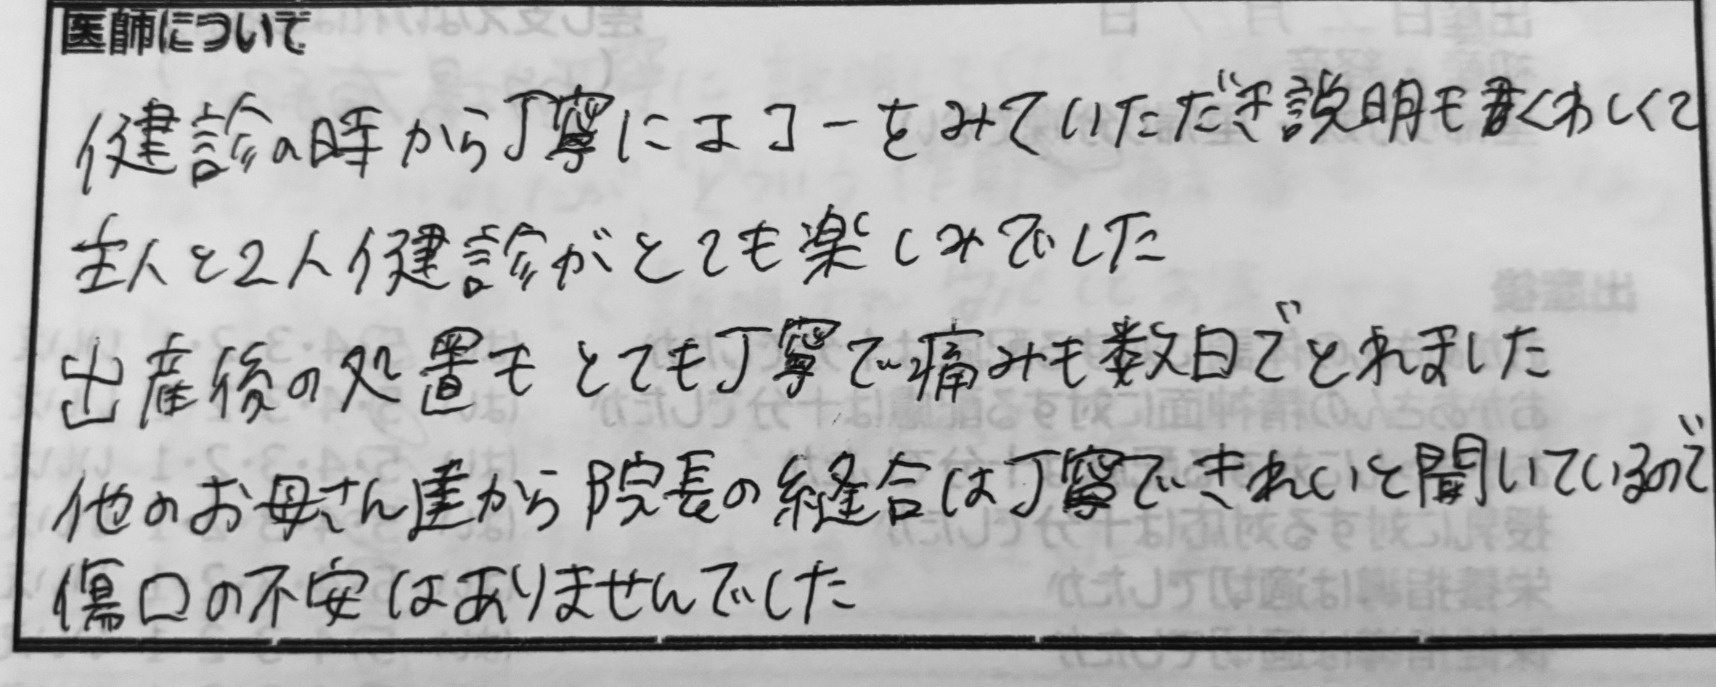 医師について
健診の時から丁寧にエコーをみていただき説明もくわしくて
主人と2人健診がとても楽しみでした
出産後の処置もとても丁寧で痛みも数日でとれました
他のお母さん達から院長の縫合は丁寧できれいと聞いているので
傷口の不安はありませんでした